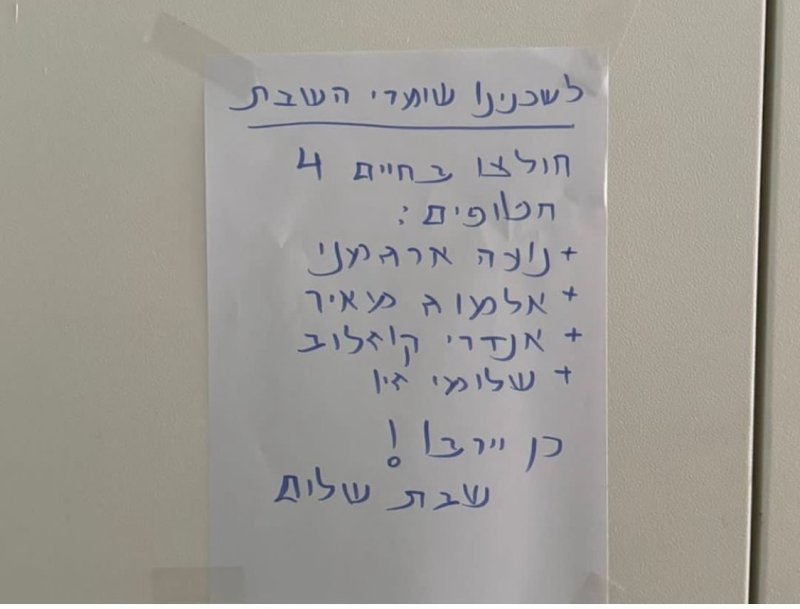 לשכנינו שומרי השבת
חולצו בחיים 4
חטופים:
+ נועה ארגמני
+ אלמוג מאיר
+ אנדרי קוזלוב
+ שלומי זיו
כן יירבו!
שבת שלום